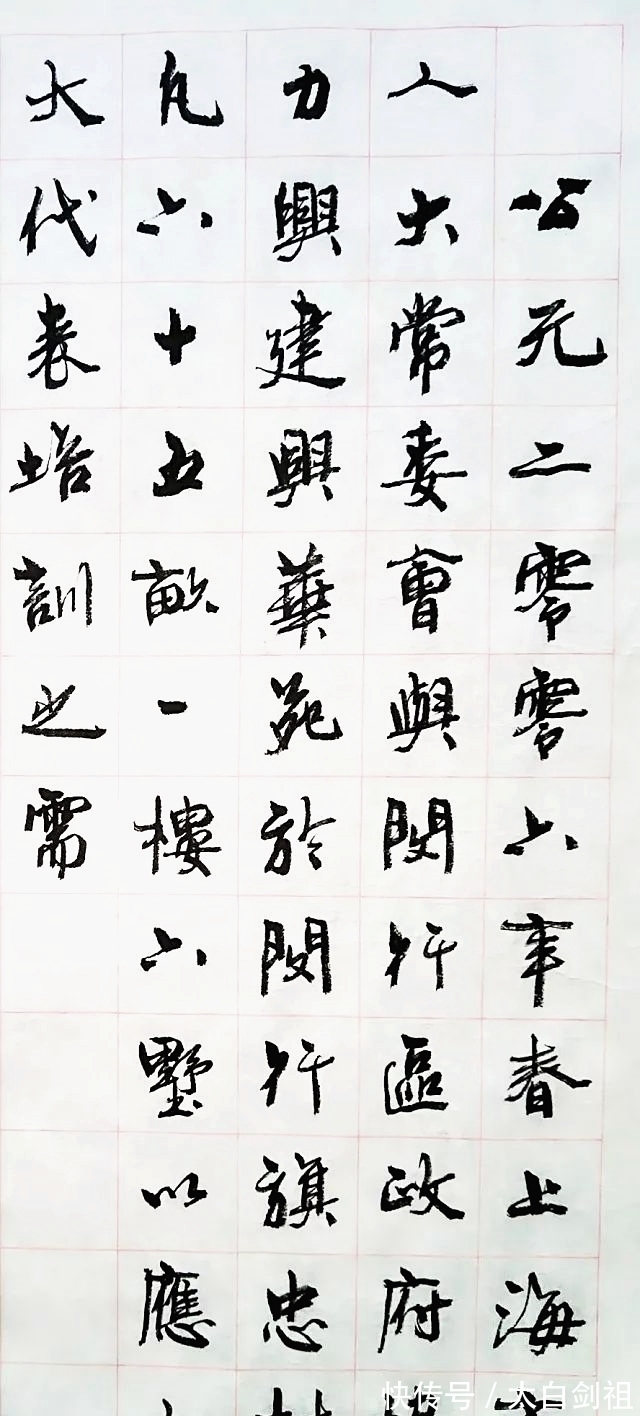 公元二零零六年春上海
人大常委會與閔行區政府
力興建興華苑於閔行旗忠
凡六十五畝一樓六墅以應
大代表培訓之需
快传号/大白剑祖